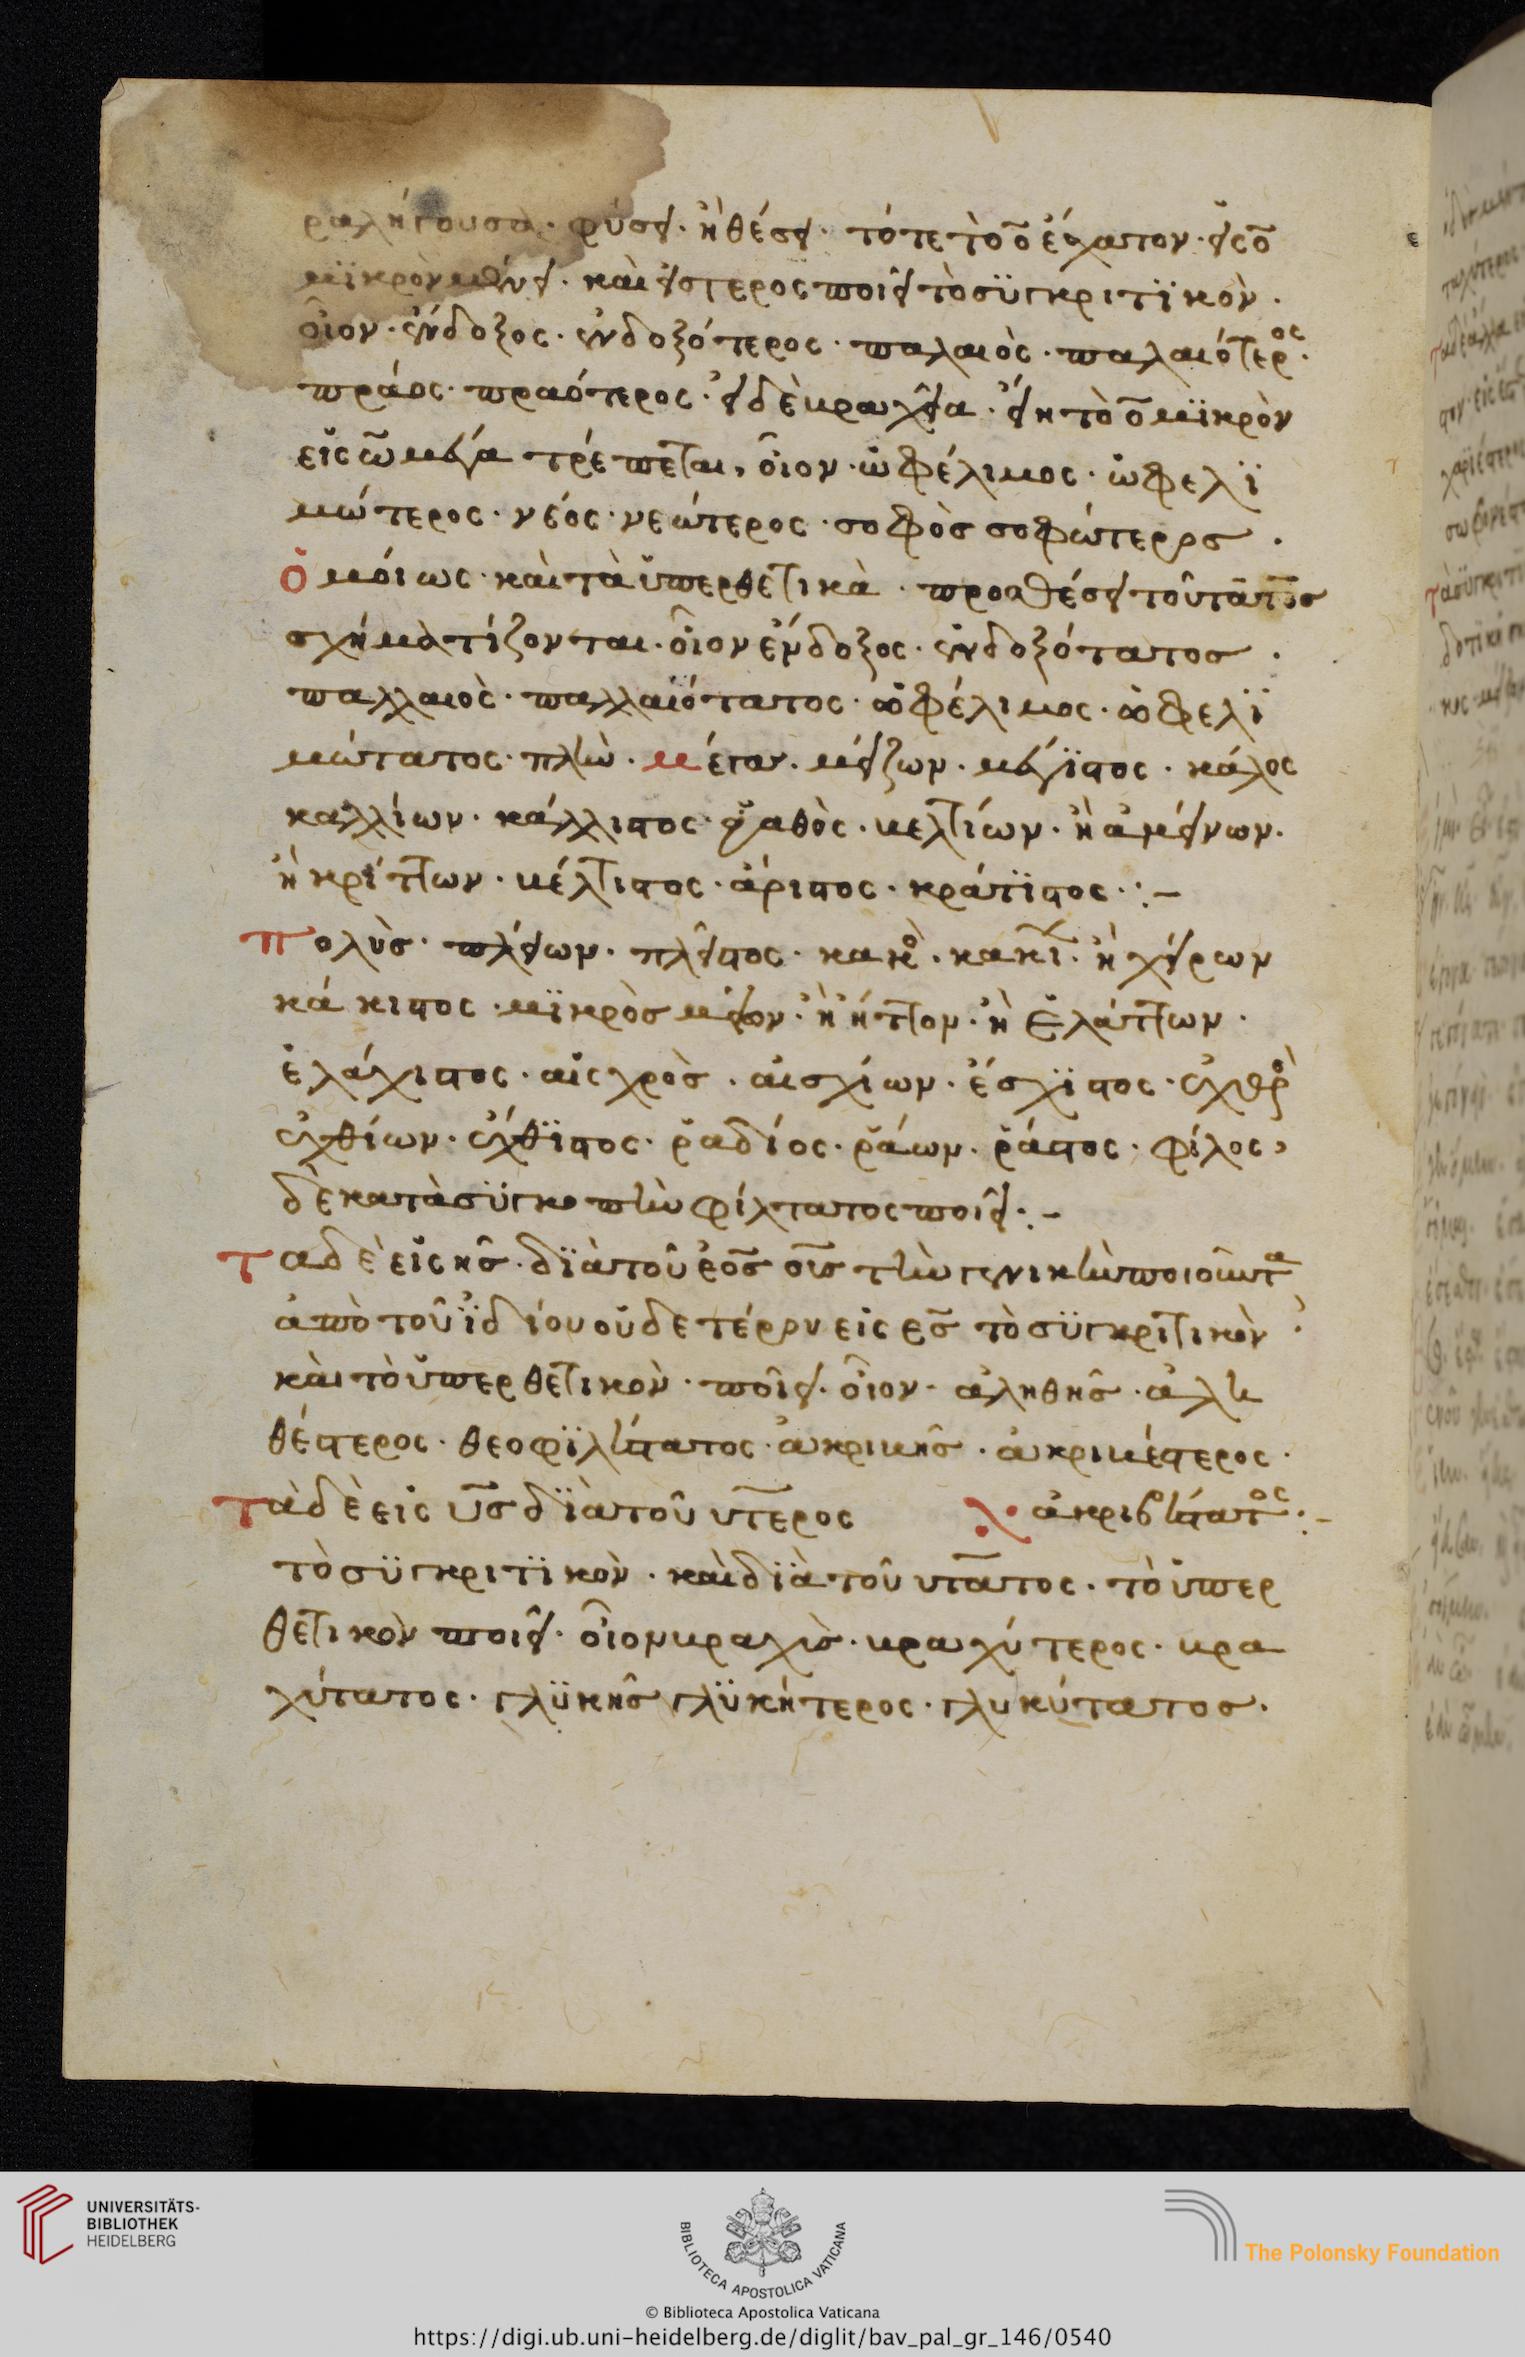 ραλήγουσα· φύσει· ἢ θέσει· τότε τὸ ο̄ ἐστὶν· εἰς ο̄
μϊκρὸν μένει· καὶ ὅτερος ποιεῖ τὸ σϋγκριτϊκὸν·
οἷον· ἔνδοξος· ἐνδοξότερος· παλαιὸς· παλαιότερος·
πράος· πραότερος· εἰ δὲ βραχεῖα· εἴη τὸ ο̄ μϊκρὸν
εἰς ω̄ μέγα τρέπεται, οἷον· ὠφέλιμος· ὠφελϊ
μώτερος· νέος· νεώτερος· σοφὸς σοφώτερος·
ὁμόιως· καὶ τὰ ὑπερθετικὰ· προσθέσει τοῦ τατος
σχήματίζονται· οἷον ἔνδοξος· ἐνδοξότατος·
παλλαιὸς· παλλαιότατος· ὠφέλιμος· ὠφελϊ
μώτατος· πλὴν· μέγας· μείζων· μέγϊστος· κάλος
καλλίων· κάλλιστος· ἀγαθὸς· βελτίων· ἢ ἀμείνων·
ἢ κρίττων· βέλτιστος· ἄριστος· κράτϊστος·:–
πολὺς· πλείων· πλεῖστος· κακὸς· κακί· ἢ χείρων
κάκιστος· μϊκρὸς μείον· ἢ ήττον· ἢ ἐλάττων·
ἐλάχιστος· αἰσχρὸς· αἰσχίων· έσχϊστος· ἐχθρὸς
ἐχθίων· ἔχθϊστος· ῥαδίος· ῥάων· ῥάστος· φίλος,
δὲ κατὰ σϋγκοπὴν φίλτατος ποιεῖ·:–
τα δὲ εἰς ης· δϊὰ τοῦ εος ους τὴν γενικὴν ποιοῦντα
ἀπὸ τοῦ ἰδίου οὐδετέρου εἰς ες τὸ σϋγκριτικὸν
καὶ τὸ ὑπερθετικὸν· ποιεῖ· οἷον· ἀληθῆς· ἀλη
θέστερος· θεοφϊλέστατος· ἀκριβῆς· ἀκριβέστερος·
τὰ δὲ εἰς υς δϊὰ τοῦ υτερος ἀκριβέστατος·:–
τὸ σϋγκριτϊκὸν· καὶ δϊὰ τοῦ υτατος· τὸ ὑπερ
θετικὸν ποιεῖ· οἷον βραχὺς· βραχύτερος· βρα
χύτατος· γλϋκῆς γλϋκήτερος· γλυκύτατος·
UNIVERSITÄTS-
BIBLIOTHEK
HEIDELBERG
BIBLIOTECA APOSTOLICA VATICANA
The Polonsky Foundation
© Biblioteca Apostolica Vaticana
https://digi.ub.uni-heidelberg.de/diglit/bav_pal_gr_146/0540